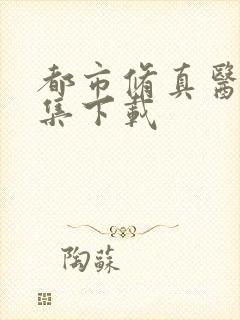 都市脩真醫
集下載
陶蘇